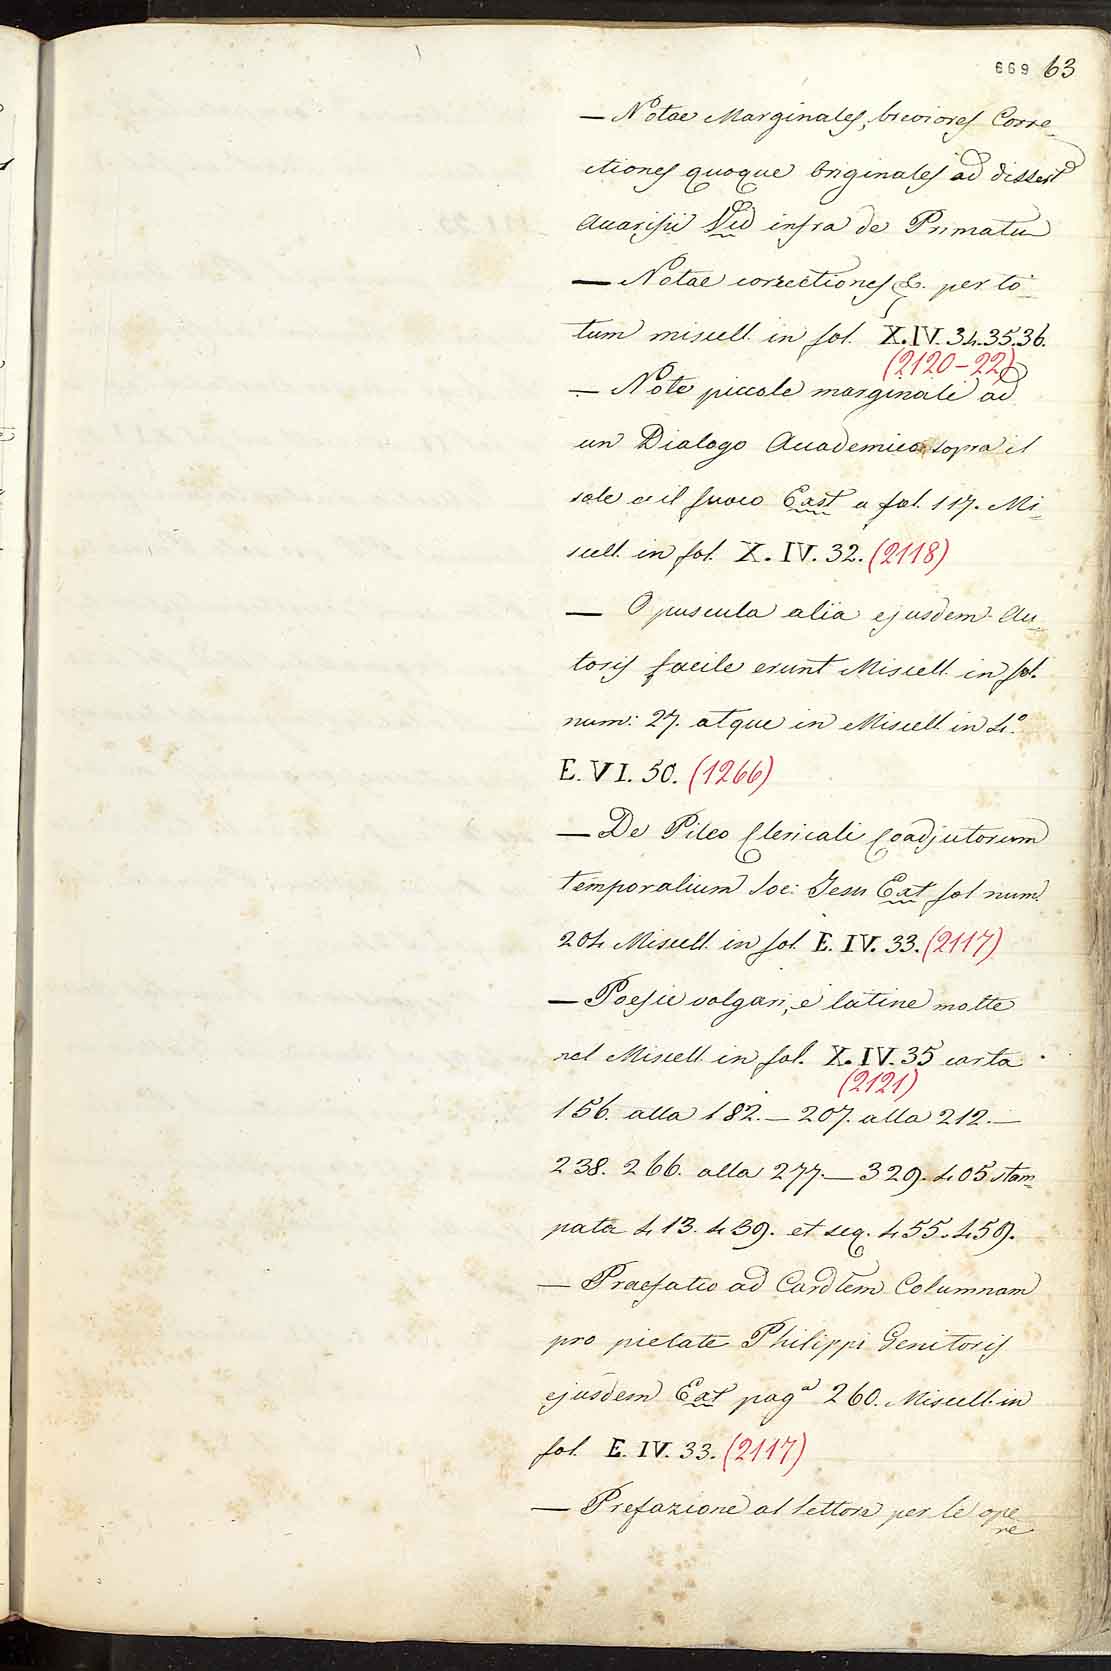 669 63
— Notae Marginales, breviores Corre-
ctiones quoque Originales ad dissert
Avarisii Vid infra de Primatu
— Notae correctiones &. per to-
tum miscell. in fol. X.IV.34.35.36.
(2120-22)
— Note piccole marginali ad
un Dialogo Accademico sopra il
sole e il fuoco Exst a fol. 117. Mi-
scell. in fol. X.IV.32. (2118)
— Opuscula alia ejusdem Au-
toris facile erunt Miscell. in fol.
num: 27. atque in Miscell. in 4.º
E.VI.50. (1266)
— De Pileo Clericali Coadjutorum
temporalium Soc: Jesu Ext fol num.
204 Miscell. in fol. E.IV.33. (2117)
— Poesie volgari, e latine molte
nel Miscell. in fol. X.IV.35 carta
(2121)
156. alla 182.— 207. alla 212.—
238. 266. alla 277.— 329. 405 stam-
pata 413. 439. et seq. 455. 459.
— Praefatio ad Cardlem Columnam
pro pietate Philippi Genitoris
ejusdem Ext pagª 260. Miscell. in
fol. E.IV.33. (2117)
— Prefazione al lettore per le ope
re